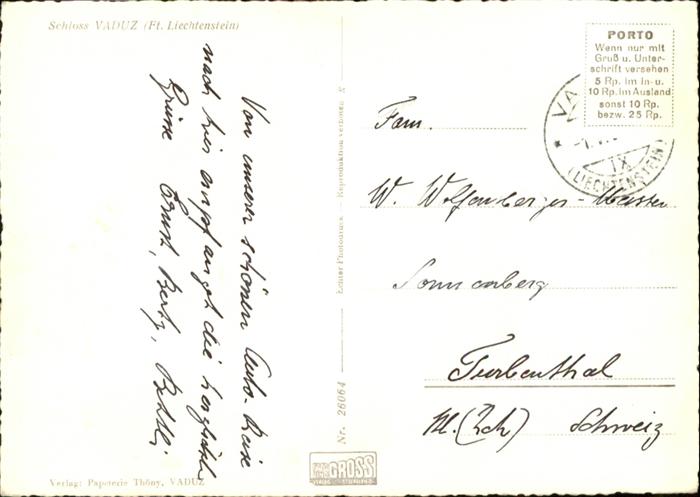 Schloss VADUZ (Ft. Liechtenstein)
Von unserer schönen Auto-Reise
nach hier empfanget die herzlichsten
Grüsse Ernst, Berty,
Verlag: Papeterie Thöny, VADUZ
Nr. 26064 Echter Photodruck — Reproduktion verboten
GROSS
PORTO
Wenn nur mit
Gruß u. Unter-
schrift versehen
5 Rp. im In- u.
10 Rp. im Ausland
sonst 10 Rp.
bezw. 25 Rp.
VA
IX
(LIECHTENSTEIN)
Fam.
W. Wolfensberger-
Sonnenberg
Turbenthal
Kt. (Zch) Schweiz